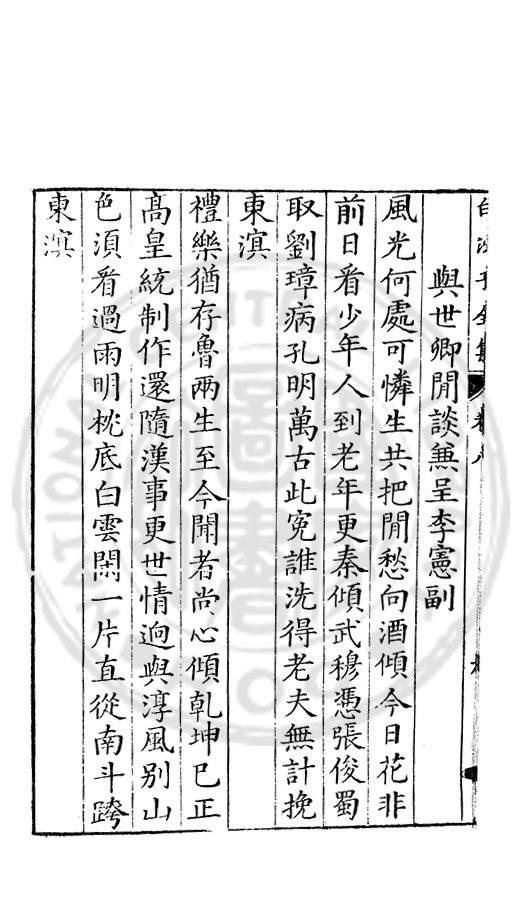 白沙子全集 卷八
與世卿閒談兼呈李憲副
風光何處可憐生共把閒愁向酒傾今日花非
前日看少年人到老年更秦傾武穆憑張俊蜀
取劉璋病孔明萬古此冤誰洗得老夫無計挽
東溟
禮樂猶存魯兩生至今聞者尚心傾乾坤已正
高皇統制作還隨漢事更世情逈與淳風别山
色須看過雨明枕底白雲閒一片直從南斗跨
東溟